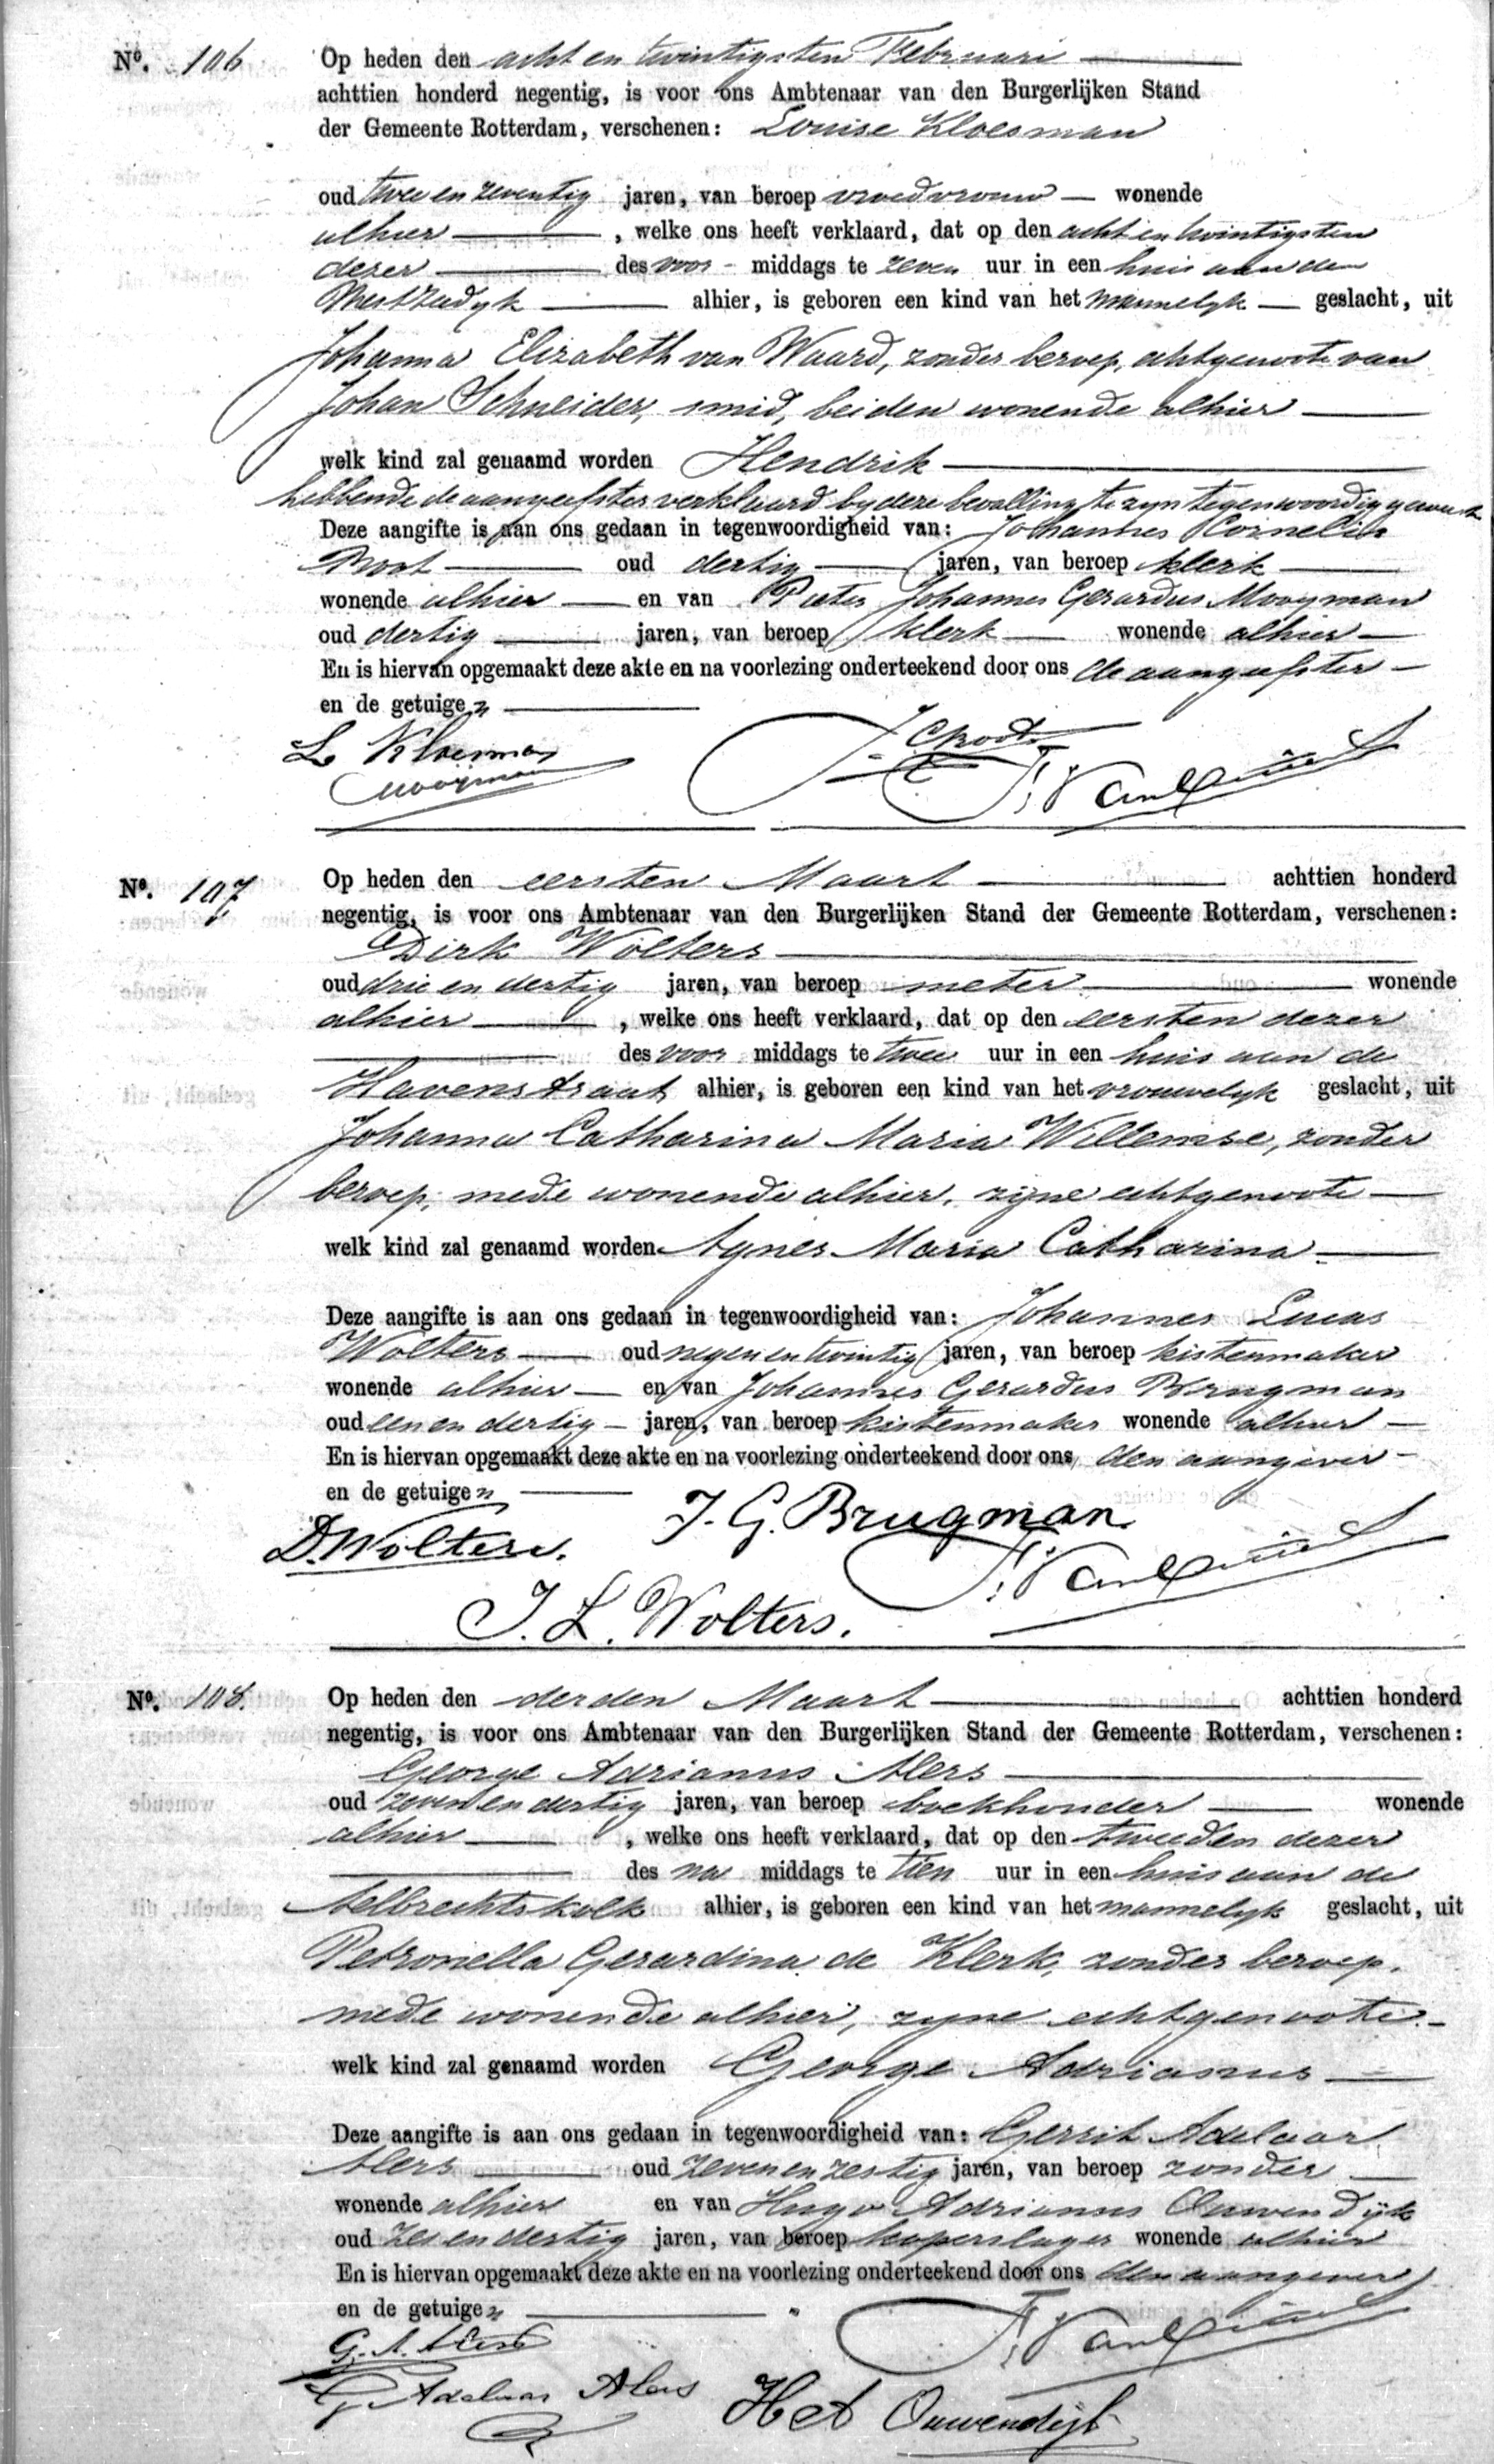 No. 106 Op heden den acht en twintigsten Februari
achttien honderd negentig, is voor ons Ambtenaar van den Burgerlijken Stand
der Gemeente Rotterdam, verschenen: Louise Kloesman
oud twee en zeventig jaren, van beroep vroedvrouw — wonende
alhier —, welke ons heeft verklaard, dat op den acht en twintigsten
dezer — des voor - middags te zeven uur in een huis aan den
Westzeedyk — alhier, is geboren een kind van het mannelyk — geslacht, uit
Johanna Elizabeth van Waard, zonder beroep, echtgenoote van
Johan Schneider, smid, beiden wonende alhier —
welk kind zal genaamd worden Hendrik —
hebbende de aangeefster verklaard by deze bevalling te zyn tegenwoordig geweest
Deze aangifte is aan ons gedaan in tegenwoordigheid van: Johannes Cornelis
— oud dertig — jaren, van beroep klerk —
wonende alhier — en van Pieter Johannes Gerardus Mooyman
oud dertig — jaren, van beroep klerk — wonende alhier —
En is hiervan opgemaakt deze akte en na voorlezing onderteekend door ons de aangeefster —
en de getuigen —
L. Kloesman
Mooyman
No. 107 Op heden den eersten Maart — achttien honderd
negentig, is voor ons Ambtenaar van den Burgerlijken Stand der Gemeente Rotterdam, verschenen:
Dirk Wolters —
oud drie en dertig jaren, van beroep meter — wonende
alhier —, welke ons heeft verklaard, dat op den eersten dezer
— des voor middags te twee uur in een huis aan de
Havenstraat alhier, is geboren een kind van het vrouwelyk geslacht, uit
Johanna Catharina Maria Willemse, zonder
beroep, mede wonende alhier, zyne echtgenoote —
welk kind zal genaamd worden Agnes Maria Catharina —
Deze aangifte is aan ons gedaan in tegenwoordigheid van: Johannes Lucas
Wolters — oud negen en twintig jaren, van beroep kistenmaker
wonende alhier — en van Johannes Gerardus Brugman
oud een en dertig — jaren, van beroep kistenmaker wonende alhier —
En is hiervan opgemaakt deze akte en na voorlezing onderteekend door ons, den aangever —
en de getuigen —
J. G. Brugman
D. Wolters.
J. L. Wolters.
No. 108. Op heden den derden Maart — achttien honderd
negentig, is voor ons Ambtenaar van den Burgerlijken Stand der Gemeente Rotterdam, verschenen:
George Adrianus Alers —
oud zeven en dertig jaren, van beroep boekhouder — wonende
alhier —, welke ons heeft verklaard, dat op den tweeden dezer
— des na middags te tien uur in een huis aan de
Aelbrechtskolk alhier, is geboren een kind van het mannelyk geslacht, uit
Petronella Gerardina de Klerk, zonder beroep,
mede wonende alhier, zyne echtgenoote. —
welk kind zal genaamd worden George Adrianus —
Deze aangifte is aan ons gedaan in tegenwoordigheid van: Gerrit Adelaar
Alers — oud zeven en zestig jaren, van beroep zonder —
wonende alhier en van Hugo Adrianus Ouwendijk
oud zes en dertig jaren, van beroep koperslager wonende alhier
En is hiervan opgemaakt deze akte en na voorlezing onderteekend door ons den aangever
en de getuigen —
G. A. Alers
G. Adelaar Alers
Ouwendijk